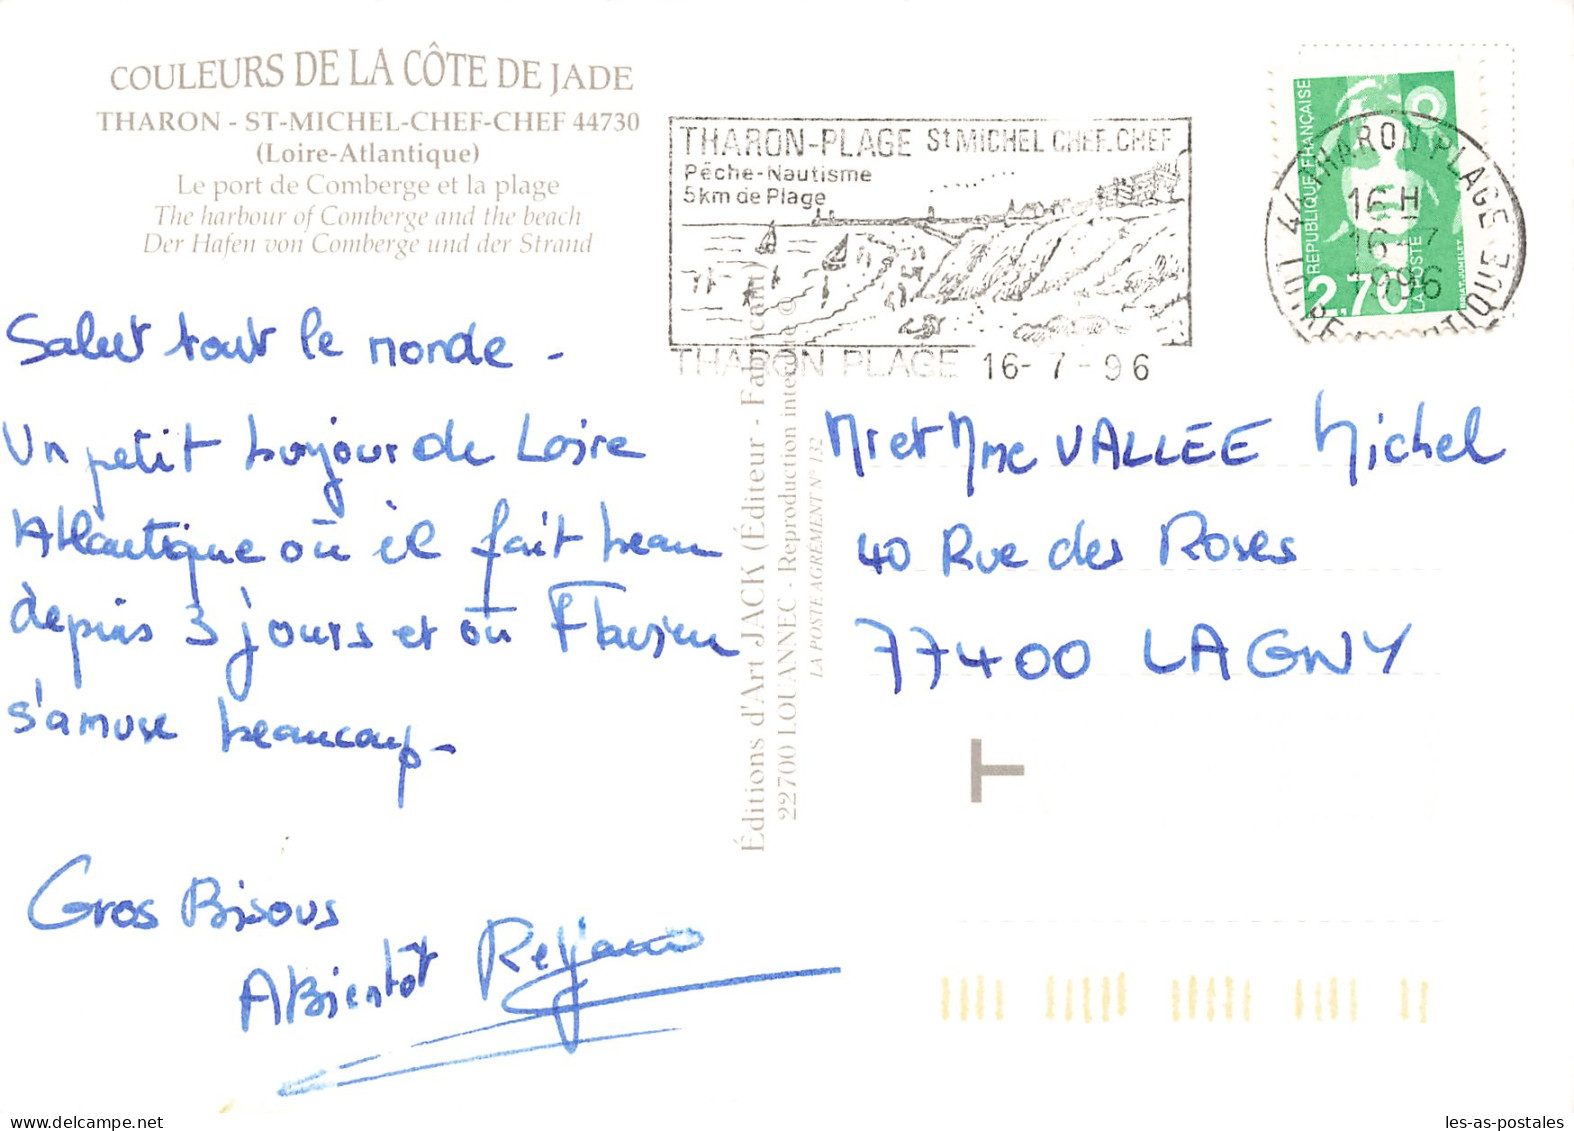 COULEURS DE LA CÔTE DE JADE
THARON - ST-MICHEL-CHEF-CHEF 44730
(Loire-Atlantique)
Le port de Comberge et la plage
The harbour of Comberge and the beach
Der Hafen von Comberge und der Strand
THARON-PLAGE St MICHEL CHEF.CHEF
Pêche-Nautisme
5km de Plage
THARON PLAGE 16-7-96
RÉPUBLIQUE FRANÇAISE
LA POSTE
2.70
44 THARON PLAGE
16 H
16-7
1996
LOIRE ATLANTIQUE
Salut tout le monde -
Un petit bonjour de Loire
Atlantique où il fait beau
depuis 3 jours et où Flavien
s'amuse beaucoup -
Gros Bisous
A Bientôt
Éditions d'Art JACK (Éditeur - Fabricant)
22700 LOUANNEC - Reproduction interdite ©
LA POSTE AGRÉMENT N° 132
Mr et Mme VALLEE Michel
40 Rue des Roses
77400 LAGNY
T
delcampe.net
les-as-postales